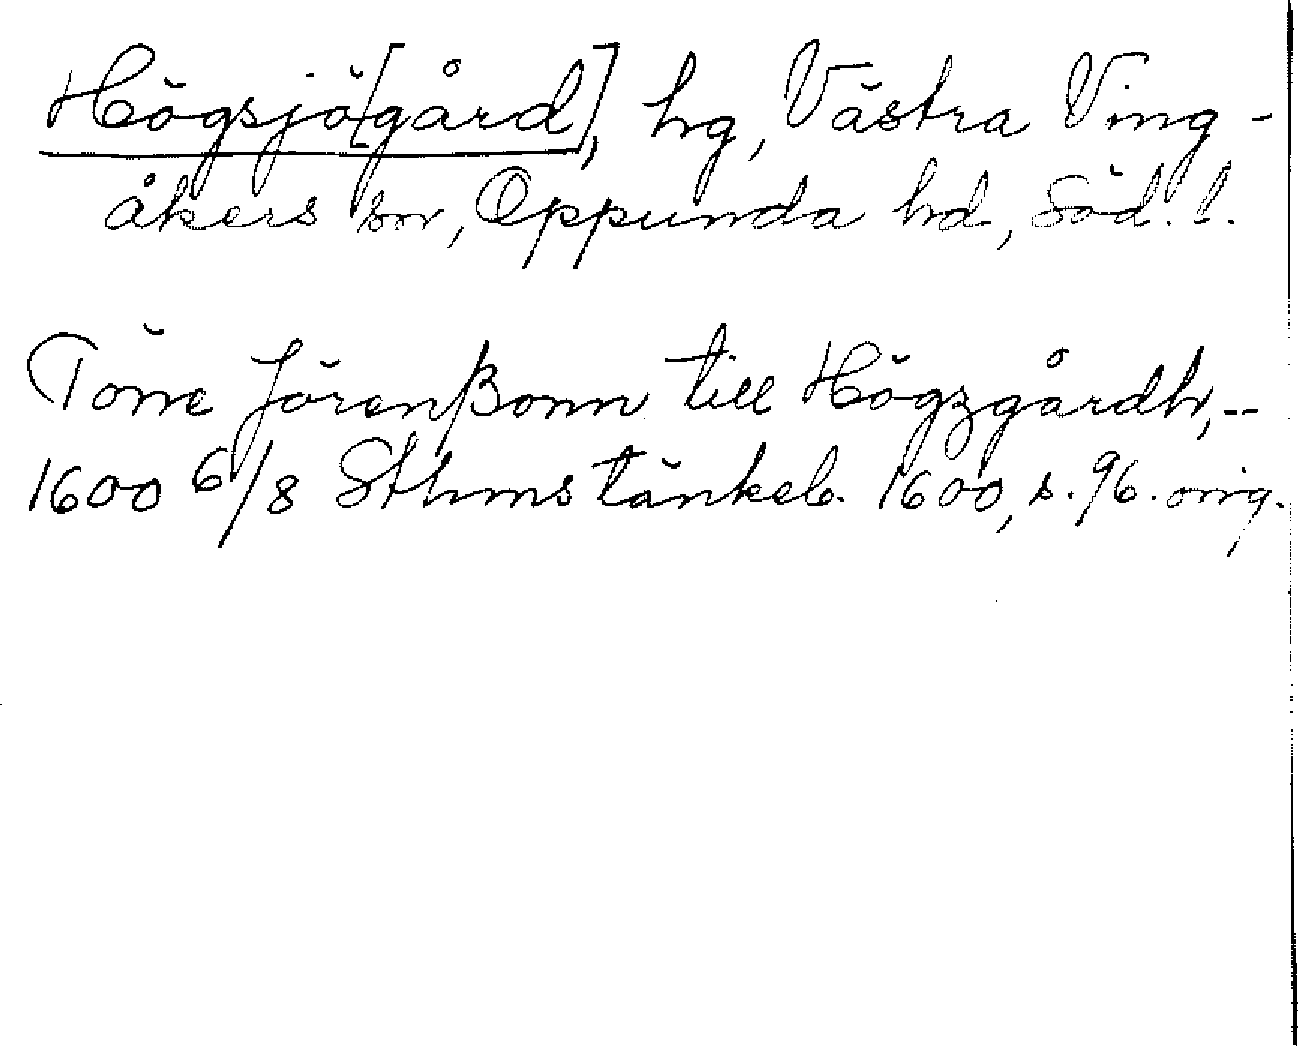 Högsjö[gård], hg, Västra Ving-
åkers sn, Oppunda hd, Söd. l.
Tönne Jörenßonn till Högzgårdh, --
1600 6/8 Sthms tänkeb. 1600, s. 96. orig.